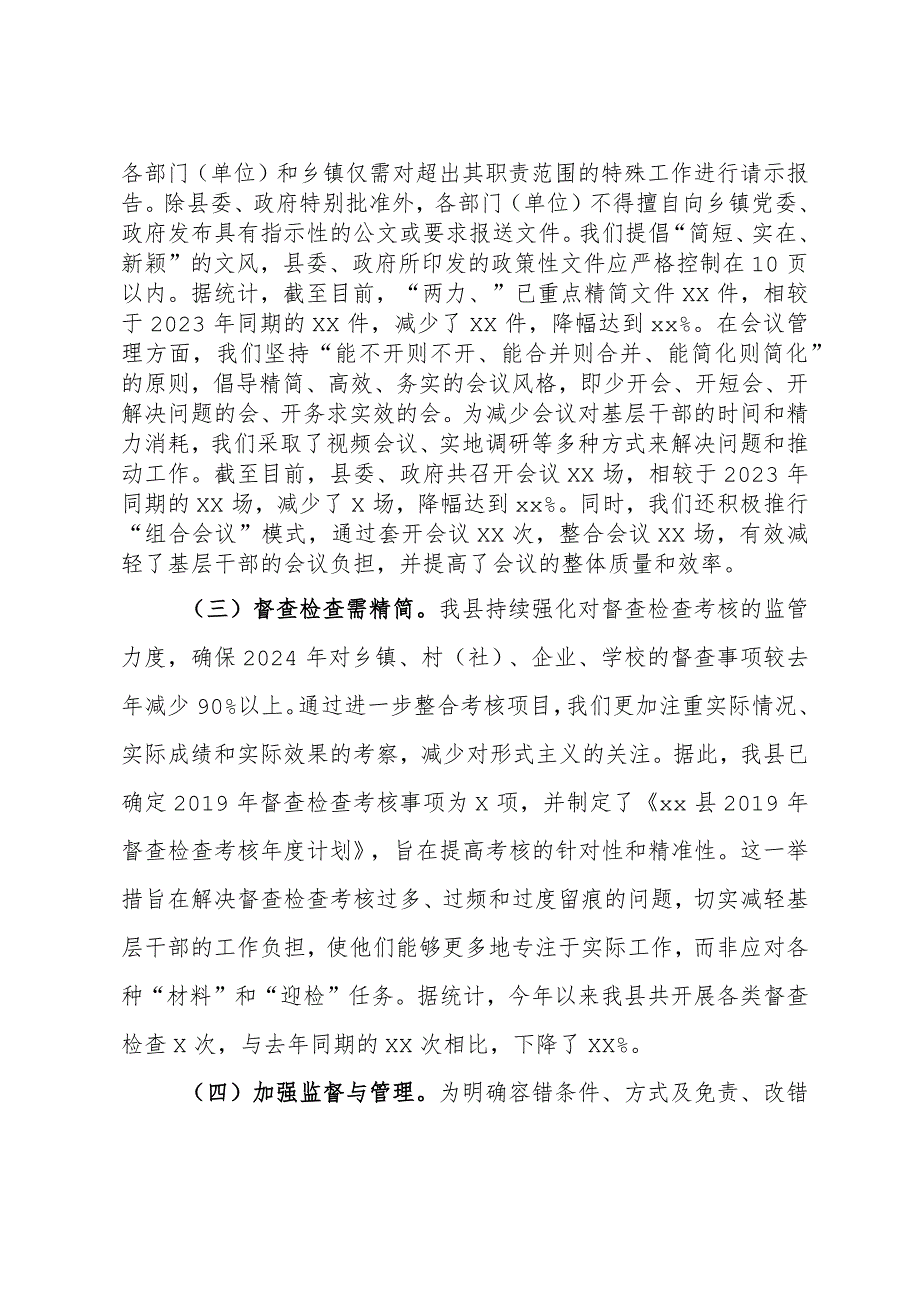 各部门（单位）和乡镇仅需对超出其职责范围的特殊工作进行请示报
告。除县委、政府特别批准外，各部门（单位）不得擅自向乡镇党委、
政府发布具有指示性的公文或要求报送文件。我们提倡“简短、实在、
新颖”的文风，县委、政府所印发的政策性文件应严格控制在 10 页
以内。据统计，截至目前，“两力、”已重点精简文件 XX 件，相较
于 2023 年同期的 XX 件，减少了 XX 件，降幅达到 xx%。在会议管
理方面，我们坚持“能不开则不开、能合并则合并、能简化则简化”
的原则，倡导精简、高效、务实的会议风格，即少开会、开短会、开
解决问题的会、开务求实效的会。为减少会议对基层干部的时间和精
力消耗，我们采取了视频会议、实地调研等多种方式来解决问题和推
动工作。截至目前，县委、政府共召开会议 XX 场，相较于 2023 年
同期的 XX 场，减少了 X 场，降幅达到 xx%。同时，我们还积极推行
“组合会议”模式，通过套开会议 XX 次，整合会议 XX 场，有效减
轻了基层干部的会议负担，并提高了会议的整体质量和效率。
（三）督查检查需精简。我县持续强化对督查检查考核的监管
力度，确保 2024 年对乡镇、村（社）、企业、学校的督查事项较去
年减少 90%以上。通过进一步整合考核项目，我们更加注重实际情况、
实际成绩和实际效果的考察，减少对形式主义的关注。据此，我县已
确定 2019 年督查检查考核事项为 X 项，并制定了《xx 县 2019 年
督查检查考核年度计划》，旨在提高考核的针对性和精准性。这一举
措旨在解决督查检查考核过多、过频和过度留痕的问题，切实减轻基
层干部的工作负担，使他们能够更多地专注于实际工作，而非应对各
种“材料”和“迎检”任务。据统计，今年以来我县共开展各类督查
检查 X 次，与去年同期的 XX 次相比，下降了 XX%。
（四）加强监督与管理。为明确容错条件、方式及免责、改错